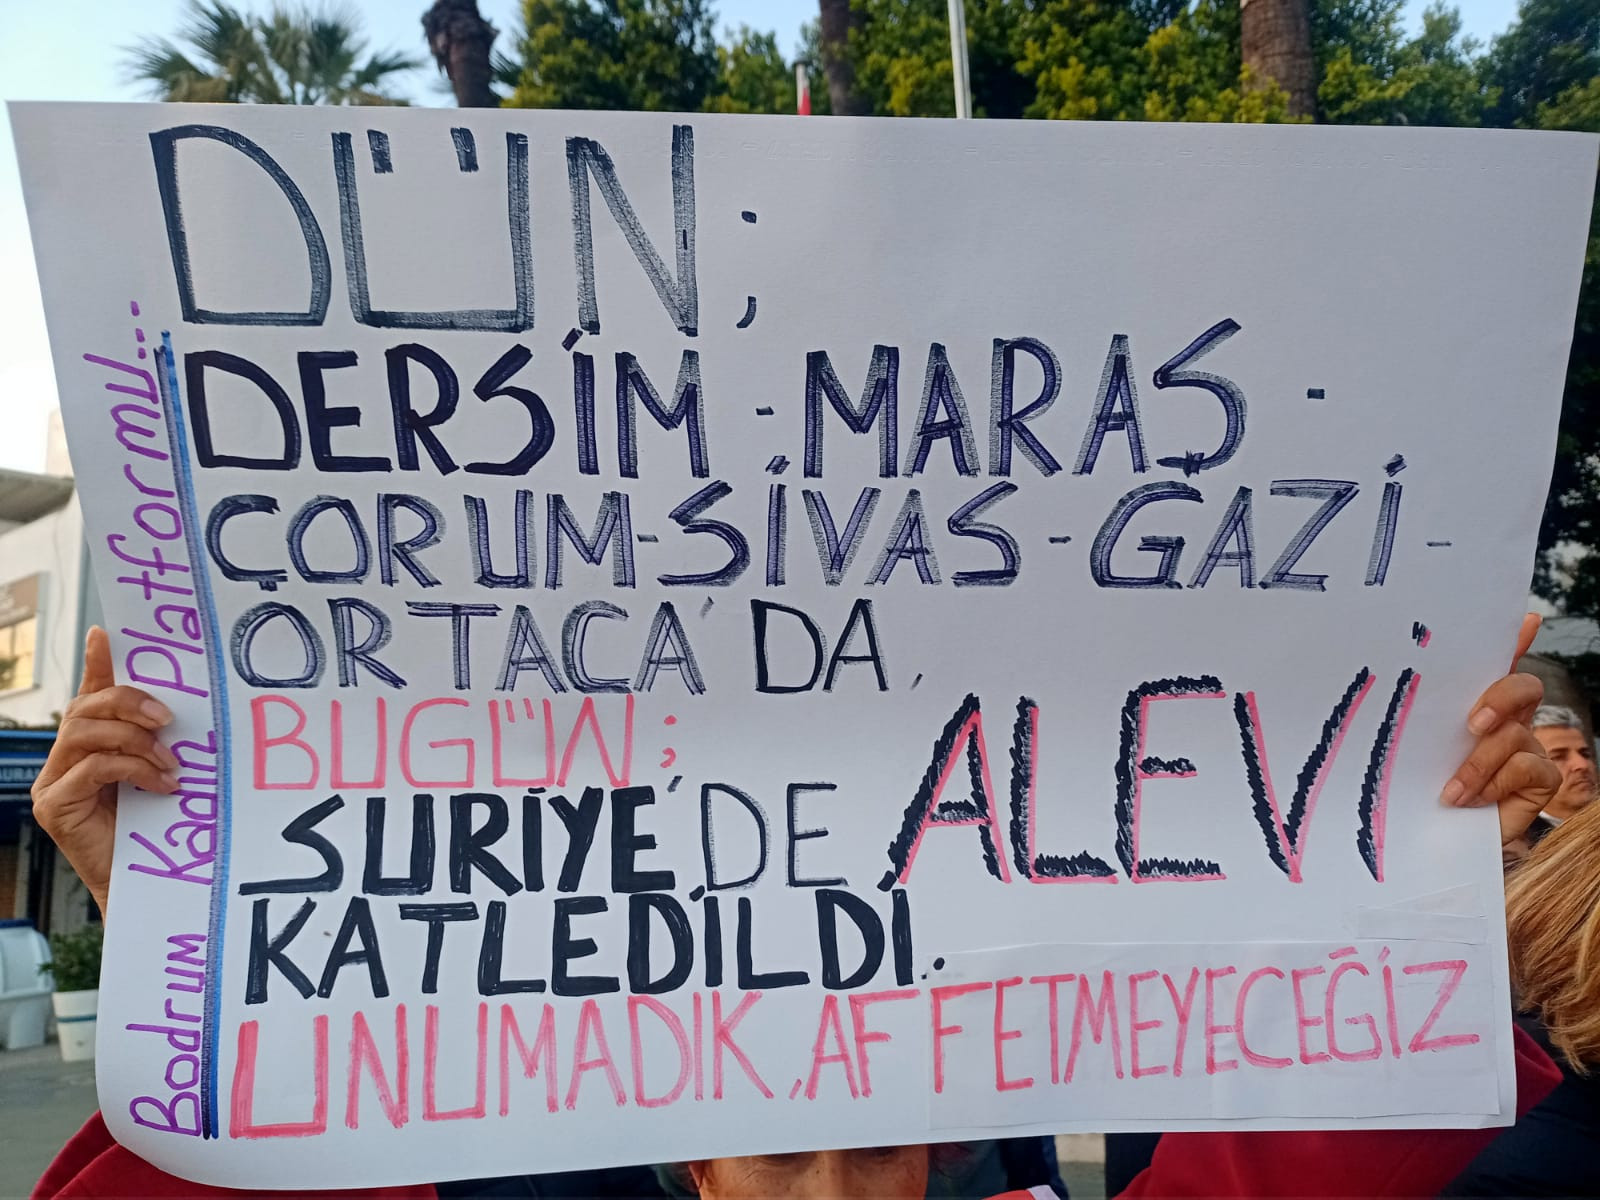 DÜN;
DERSİM - MARAŞ -
ÇORUM-SİVAS - GAZİ -
ORTACA'DA,
BUGÜN;
SURİYE'DE ALEVİ
KATLEDİLDİ.
UNUMADIK, AFFETMEYECEĞİZ
Bodrum Kadın Platformu...